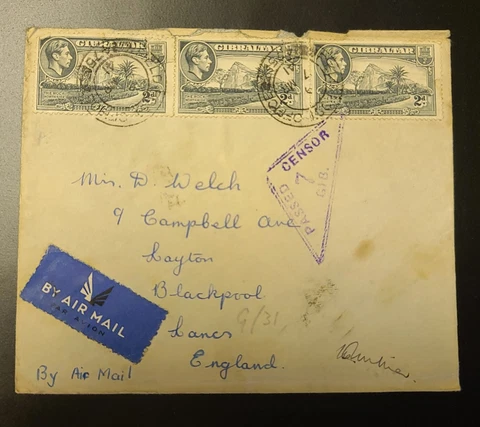 GIBRALTAR GIBRALTAR GIBRALTAR
2d 2d 2d
PASSED CENSOR
7
GIB.
Mrs. D. Welch
9 Campbell Ave
Layton
Blackpool
Lancs
England.
BY AIR MAIL
PAR AVION
By Air Mail
9/31